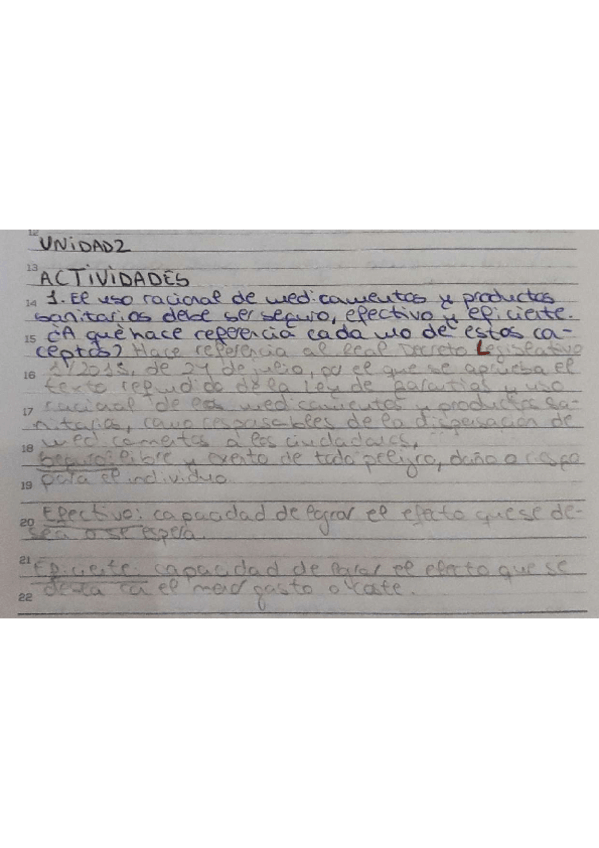 12
UNIDAD 2
13
ACTIVIDADES
14 1. El uso racional de medicamentos y productos
sanitarios debe ser seguro, efectivo y eficiente.
15 ¿A qué hace referencia cada uno de estos con-
ceptos? Hace referencia al Real Decreto Legislativo
16 1/2015, de 24 de julio, por el que se aprueba el
texto refundido de la Ley de garantías y uso
17 racional de los medicamentos y productos sa-
nitarios, como responsables de la dispensación de
18 medicamentos a los ciudadanos,
Seguro: libre y exento de todo peligro, daño o riesgo
19 para el individuo.
20 Efectivo: capacidad de lograr el efecto que se de-
sea o se espera.
21 Eficiente: capacidad de lograr el efecto que se
22 desea con el menor gasto o coste.